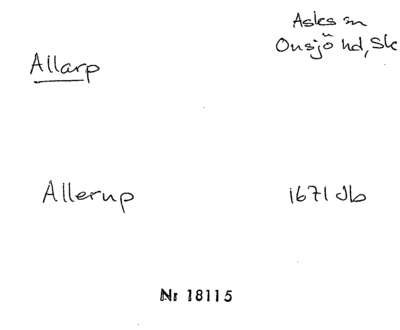 Asks sn
Onsjö hd, Sk
Allarp
Allerup
1671 Jb
Nr 18115